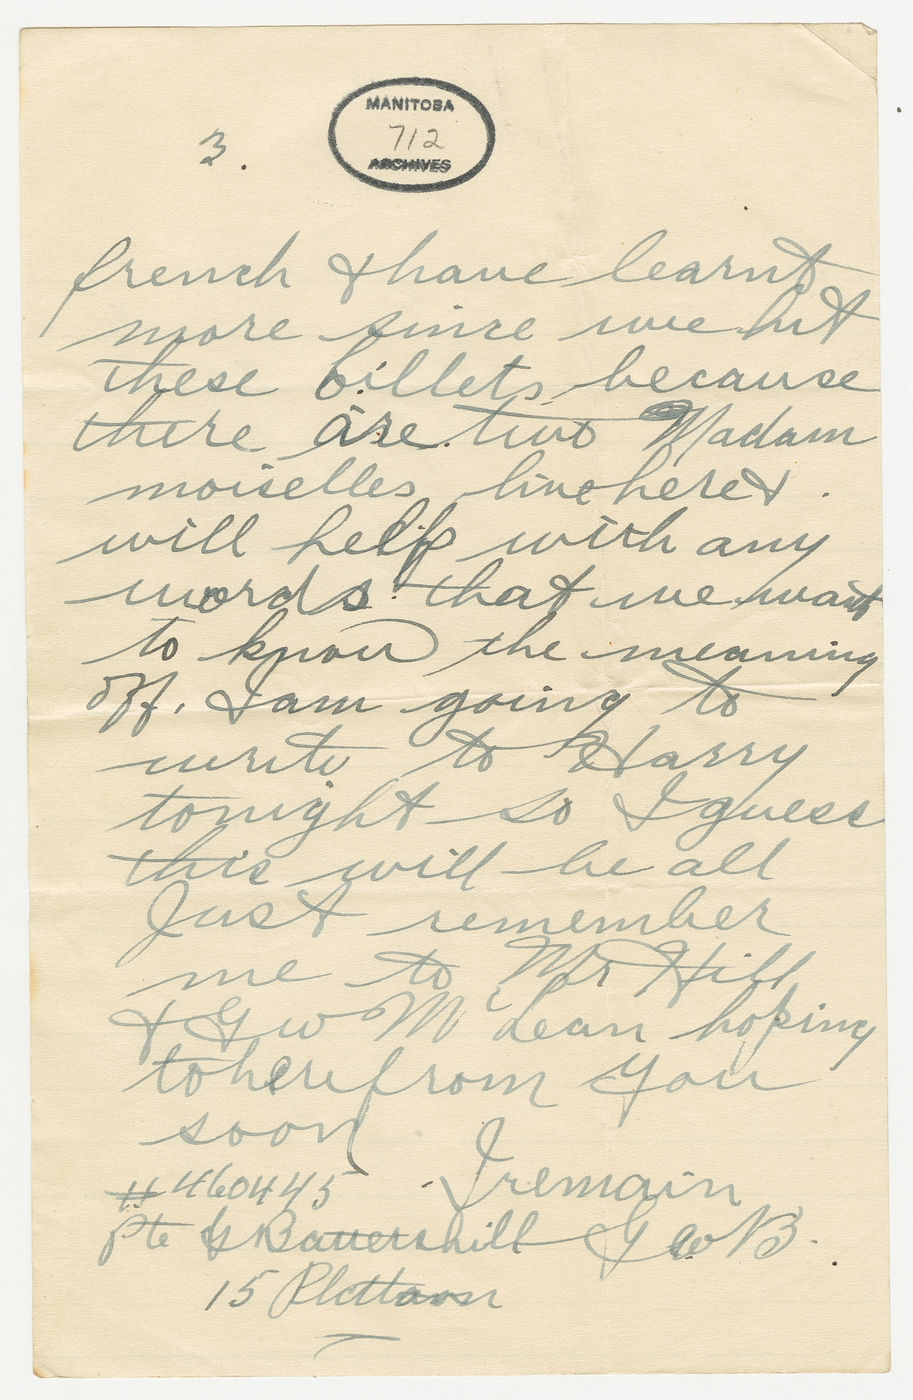 MANITOBA
712
ARCHIVES
3.
french & have learnt
more since we hit
these billets because
there are two Madam
moiselles live here & .
will help with any
words that we want
to know the meaning
off. I am going to
write to Harry
tonight so I guess
this will be all
Just remember
me to Mr Hill
& G w Mc Lean hoping
to here from you
soon
I remain
# 460445
Pte G Battershill G W B.
15 Plattoon